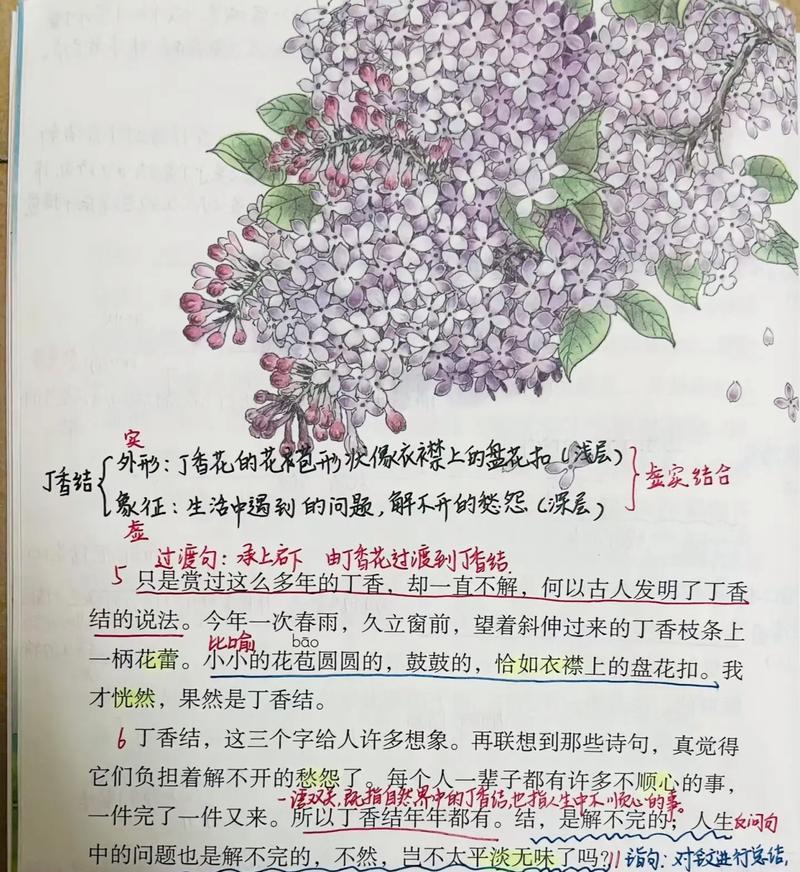 实
丁香结
外形：丁香花的花苞形状像衣襟上的盘花扣（浅层）
象征：生活中遇到的问题，解不开的愁怨（深层）
虚实结合
虚
过渡句：承上启下 由丁香花过渡到丁香结
5 只是赏过这么多年的丁香，却一直不解，何以古人发明了丁香
结的说法。今年一次春雨，久立窗前，望着斜伸过来的丁香枝条上
比喻
bāo
一柄花蕾。小小的花苞圆圆的，鼓鼓的，恰如衣襟上的盘花扣。我
才恍然，果然是丁香结。
6 丁香结，这三个字给人许多想象。再联想到那些诗句，真觉得
它们负担着解不开的愁怨了。每个人一辈子都有许多不顺心的事，
一语双关，既指自然界中的丁香结，也指人生中不顺心的事。
一件完了一件又来。所以丁香结年年都有。结，是解不完的；人生
反问句
中的问题也是解不完的，不然，岂不太平淡无味了吗？
结句：对全文进行总结，